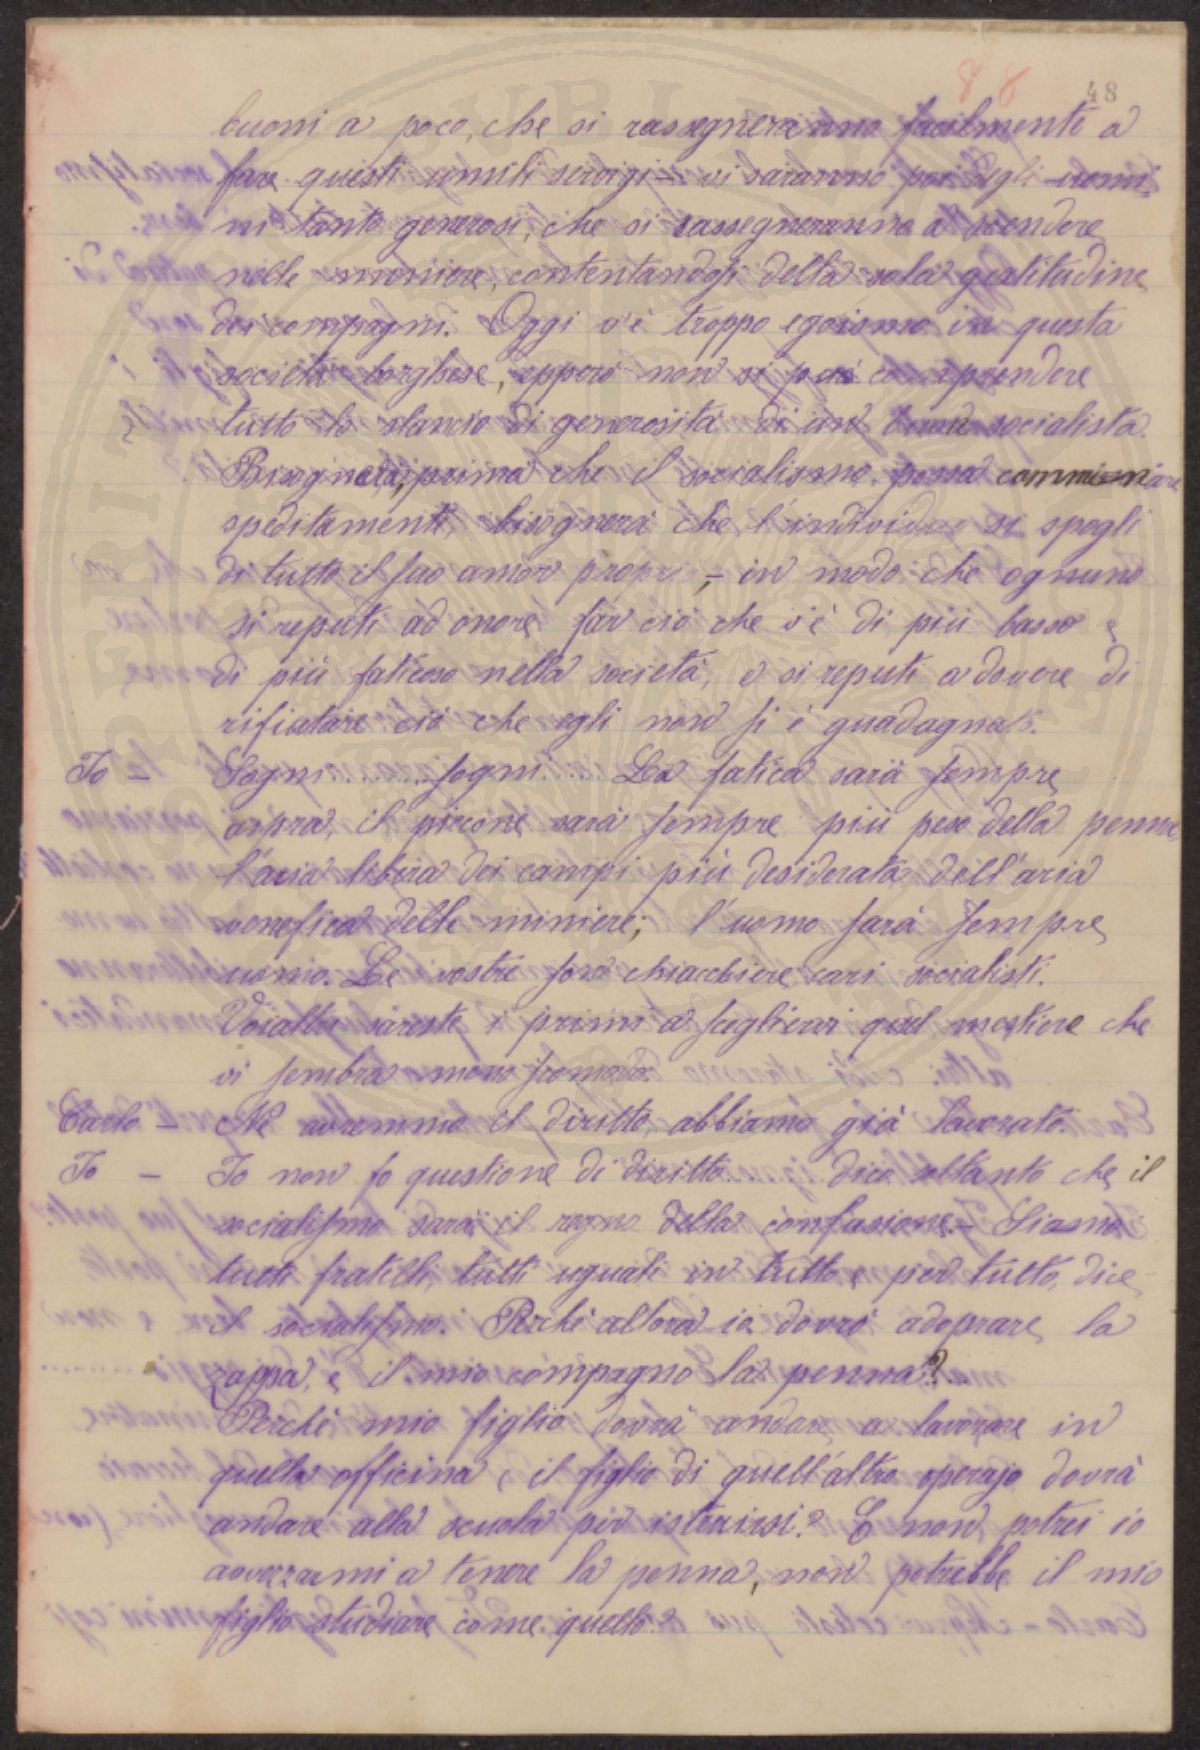 88 48
buoni a poco, che si rassegneranno facilmente a
fare questi umili servigi – vi saranno poi degli uomi-
ni tanto generosi, che si rassegneranno a scendere
nelle miniere, contentandosi della sola gratitudine
dei compagni. Oggi v'è troppo egoismo in questa
società borghese, epperò non si può comprendere
tutto lo slancio di generosità di un socialista.
Bisognerà, prima che il socialismo possa camminare
speditamente, bisognerà che l'individuo si spogli
di tutto il suo amor proprio, – in modo che ognuno
si reputi ad onore far ciò che v'è di più basso e
di più faticoso nella società, o si reputi a dovere di
rifiutare ciò che egli non si è guadagnato.
Io – Sogni..... sogni. La fatica sarà sempre
aspra, il piccone sarà sempre più peso della penna,
l'aria libera dei campi più desiderata dell'aria
venefica delle miniere; l'uomo sarà sempre
uomo. Le vostre son chiacchiere, cari socialisti.
Voialtri sareste i primi a scegliervi quel mestiere che
vi sembra meno scomodo.
Carlo – Ne avremmo il diritto, abbiamo già lavorato.
Io – Io non fo questione di diritto.... dico soltanto che il
socialismo sarà il regno della confusione. – Siamo
tutti fratelli, tutti uguali in tutto e per tutto, dice
il socialismo. Perchè allora io dovrò adoprare la
zappa, e il mio compagno la penna?
Perchè mio figlio dovrà andare a lavorare in
quella officina e il figlio di quell'altro operajo dovrà
andare alla scuola per istruirsi? E non potrei io
avvezzarmi a tenere la penna, non potrebbe il mio
figlio studiare come quello?